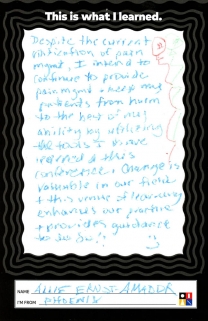 This is what I learned.
Despite the current
vilification of pain
mgmt, I intend to
continue to provide
pain mgmt & keep my
patients from harm
to the best of my
ability by utilizing
the tools I have
learned @ this
conference. Change is
valuable in our field
& this venue of learning
enhances our practice
& provides guidance
to do so!
NAME ALLIE ERNST-AMADOR
I'M FROM PHOENIX